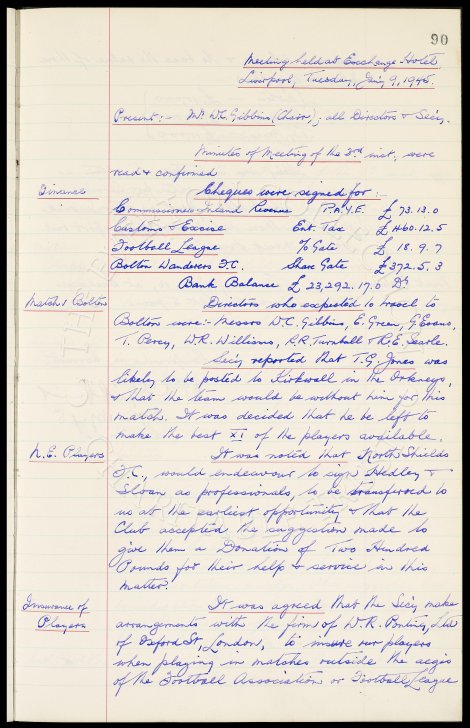 90
Meeting held at Exchange Hotel,
Liverpool, Tuesday, Jan'y 9, 1945.
Present:- Mr W.C. Gibbins (Chair), all Directors & Sec'y.
Minutes of Meeting of the 3rd inst. were
read & confirmed
Finance Cheques were signed for:-
Commissioners Inland Revenue P.A.Y.E. £ 73.13.0
Customs & Excise Ent. Tax £ 1460.12.5
Football League % Gate £ 18.9.7
Bolton Wanderers F.C. Share Gate £372.5.3
Bank Balance £23,292.17.0 Dr
Match v Bolton Directors who expected to travel to
Bolton were:- Messrs W.C. Gibbins, E. Green, G. Evans,
T. Percy, W.R. Williams, R.R. Turnbull & R.E. Searle.
Sec'y reported that T.G. Jones was
likely to be posted to Kirkwall in the Orkneys,
& that the team would be without him for this
match. It was decided that he be left to
make the best XI of the players available.
N.E. Players It was noted that North Shields
F.C., would endeavour to sign Hedley &
Sloan as professionals, to be transferred to
us at the earliest opportunity & that the
Club accepted the suggestion made to
give them a Donation of Two Hundred
Pounds for their help & service in this
matter.
Insurance of It was agreed that the Sec'y make
Players arrangements with the firm of W.R. Ltd
of Oxford St, London, to insure our players
when playing in matches outside the aegis
of the Football Association or Football League